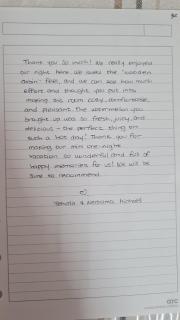 Thank you so much! We really enjoyed
our night here. We loved the "wooden
cabin" feel, and we can see how much
effort and thought you put into
making this room cosy, comfortable,
and pleasant. The watermelon you
brought up was so fresh, juicy, and
delicious - the perfect thing on
such a hot day! Thank you for
making our mini one-night
vacation so wonderful and full of
happy memories for us! We will be
sure to recommend.
&